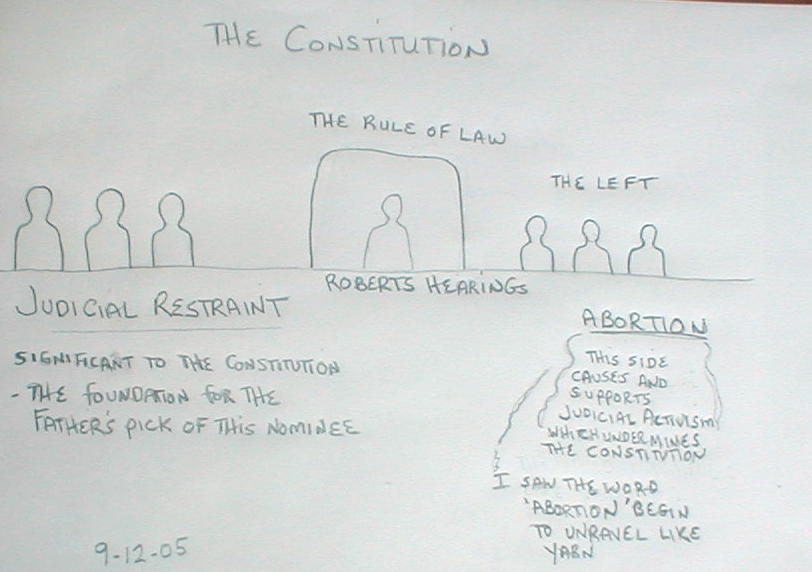 THE CONSTITUTION
THE RULE OF LAW
THE LEFT
ROBERTS HEARINGS
JUDICIAL RESTRAINT
SIGNIFICANT TO THE CONSTITUTION
- THE FOUNDATION FOR THE
FATHER'S PICK OF THIS NOMINEE
ABORTION
THIS SIDE
CAUSES AND
SUPPORTS
JUDICIAL ACTIVISM
WHICH UNDERMINES
THE CONSTITUTION
I SAW THE WORD
'ABORTION' BEGIN
TO UNRAVEL LIKE
YARN
9-12-05